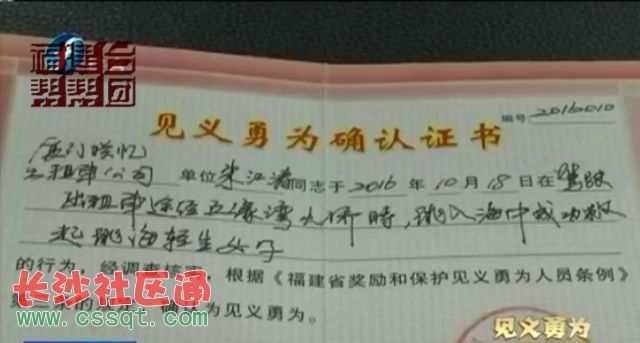 福建台
帮帮团
编号 2016010
见义勇为确认证书
厦门
出租车公司 单位 朱江涛 同志于 2016 年 10 月 18 日在 驾驶
出租车途经五缘湾大桥時,跳入海中成功救
起跳海轻生女子
的行为,经调查核实,根据《福建省奖励和保护见义勇为人员条例》
第二条的规定,确认为见义勇为。
长沙社区通
www.cssqt.com
见义勇为